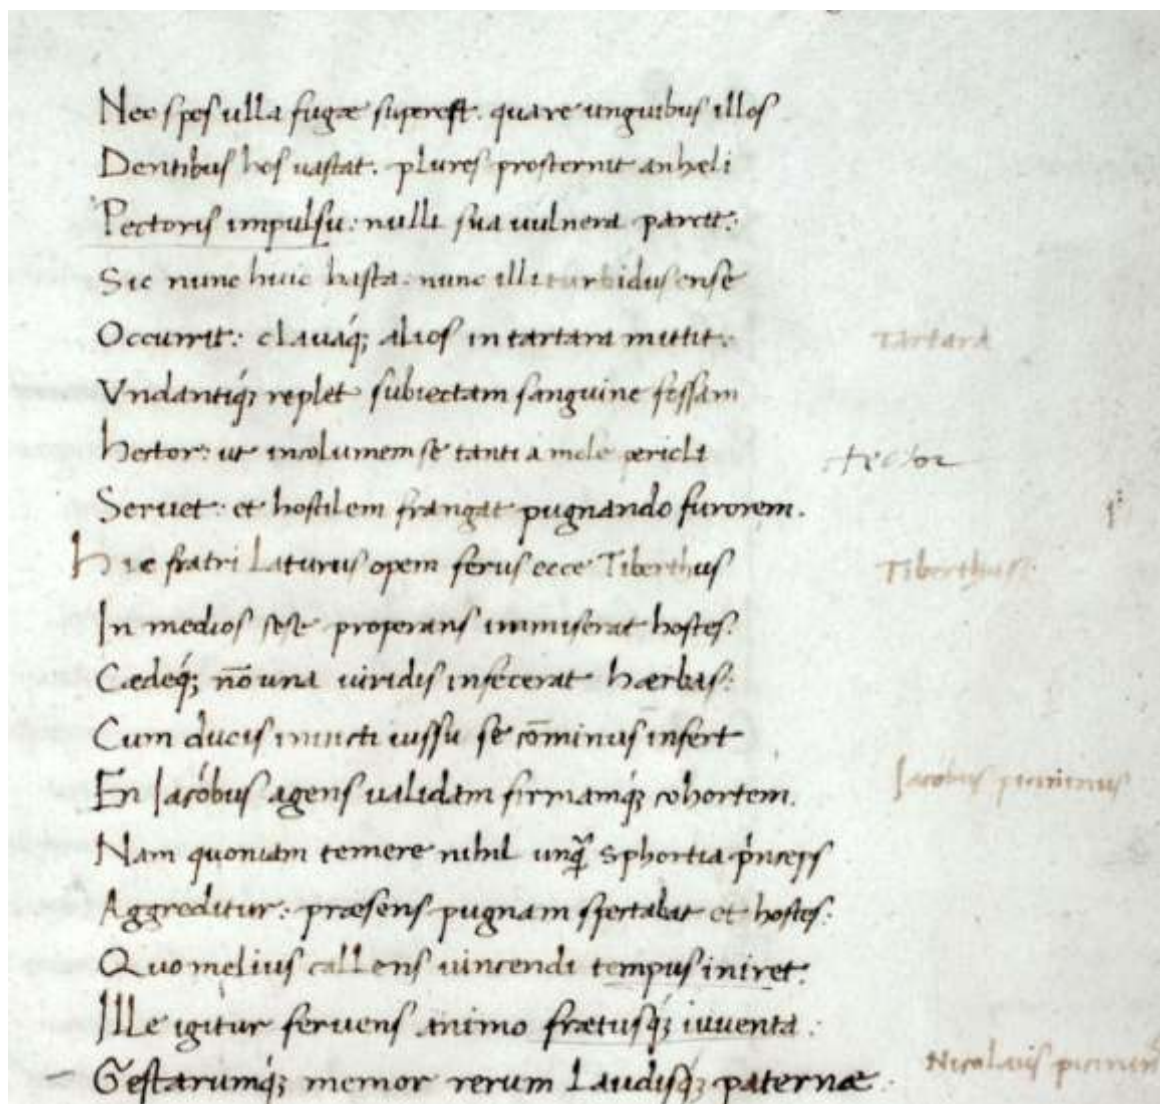 Nec spes ulla fugæ superest. quare unguibus illos
Dentibus hos vastat. plures prosternit anheli
Pectoris impulsu: nulli sua vulnera parcit:
Sic nunc huic hasta: nunc illi turbidus ense
Occurrit: clavaq; alios in tartara mittit:
Tartara
Vndantiq; replet subiectam sanguine fossam
Hector: ut incolumem se tanti a mole pericli
Hector
Servet: et hostilem frangat pugnando furorem.
Hic fratri Laturus opem ferus ecce Tiberthus
Tiberthus:
In medios sese properans immiserat hostes:
Cædeq; nō una viridis infecerat hærbas:
Cum ducis invicti iussu se cōminus infert
En Jacóbus agens validam firmamq; cohortem.
Jacobus picininus
Nam quoniam temere nihil unq̃ Sphortia p̃nceps
Aggreditur: præsens pugnam spectabat et hostes:
Quo melius callens vincendi tempus iniret:
Ille igitur fervens animo frætusq; iuventa:
Gestarumq; memor rerum Laudisq; paternæ.
Nicolaus